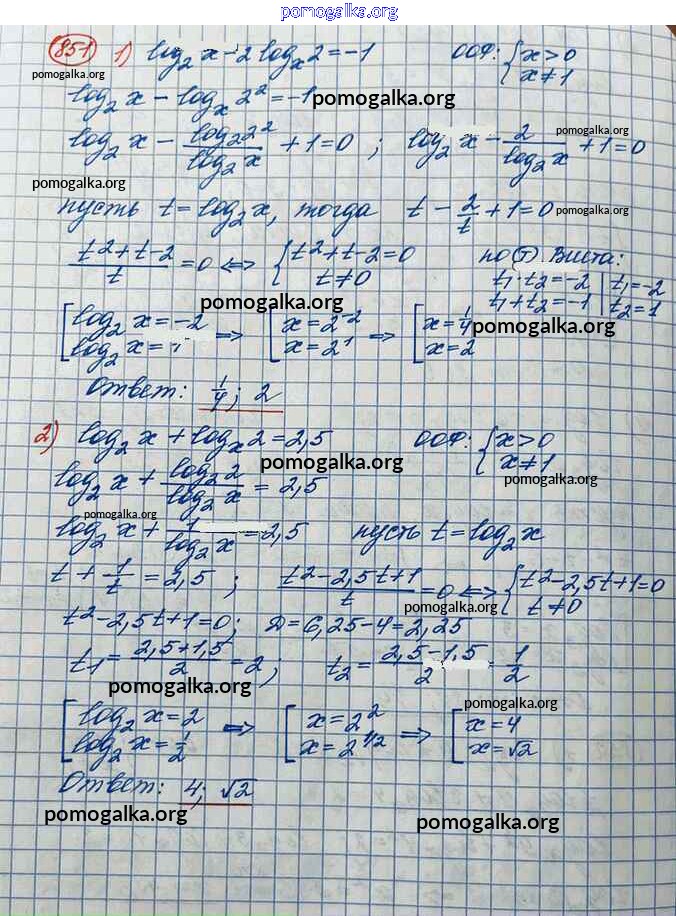 pomogalka.org
851 1) log₂ x - 2 log_x 2 = -1 ООФ: { x > 0
pomogalka.org x ≠ 1
log₂ x - log_x 2² = -1 pomogalka.org
log₂ x - log₂ 2² / log₂ x + 1 = 0 ; log₂ x - 2 / log₂ x + 1 = 0 pomogalka.org
pomogalka.org
пусть t = log₂ x, тогда t - 2/t + 1 = 0 pomogalka.org
(t² + t - 2) / t = 0 <=> { t² + t - 2 = 0 по (т) Виета:
t ≠ 0 t₁ · t₂ = -2 | t₁ = -2
pomogalka.org t₁ + t₂ = -1 | t₂ = 1
[ log₂ x = -2 => [ x = 2⁻² => [ x = 1/4 pomogalka.org
log₂ x = 1 x = 2¹ x = 2
Ответ: 1/4 ; 2
2) log₂ x + log_x 2 = 2,5 ООФ: { x > 0
pomogalka.org x ≠ 1
log₂ x + log₂ 2 / log₂ x = 2,5 pomogalka.org
pomogalka.org
log₂ x + 1 / log₂ x = 2,5 пусть t = log₂ x
t + 1/t = 2,5 ; (t² - 2,5t + 1) / t = 0 <=> { t² - 2,5t + 1 = 0
pomogalka.org t ≠ 0
t² - 2,5t + 1 = 0; D = 6,25 - 4 = 2,25
t₁ = (2,5 + 1,5) / 2 = 2; t₂ = (2,5 - 1,5) / 2 = 1/2
pomogalka.org
pomogalka.org
[ log₂ x = 2 => [ x = 2² => [ x = 4
log₂ x = 1/2 x = 2^1/2 x = √2
Ответ: 4; √2
pomogalka.org pomogalka.org